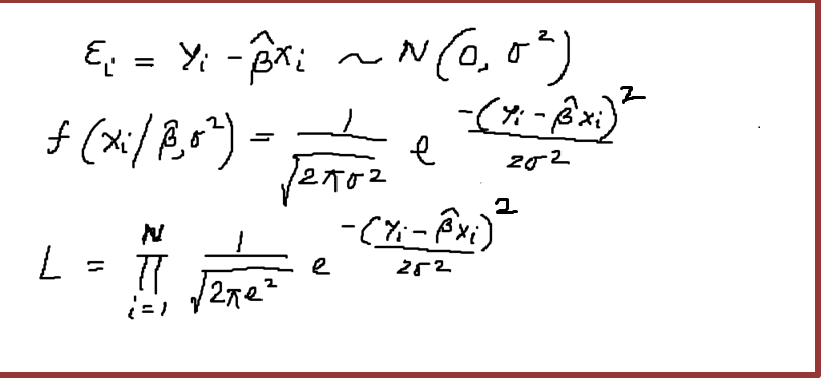 εᵢ = Yᵢ - β̂xᵢ ~ N(0, σ²)
f(xᵢ/β̂,σ²) = 1/√(2πσ²) e^(-(Yᵢ - β̂xᵢ)²/2σ²)
L = ∏ᵢ₌₁ᴺ 1/√(2πe²) e^(-(Yᵢ - β̂xᵢ)²/2σ²)